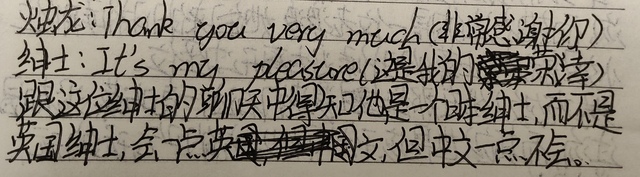 烛龙：Thank you very much（非常感谢你）
绅士：It's my pleasure（这是我的荣幸）
跟这位绅士的聊天中得知他是一个日本绅士，而不是
英国绅士，会一点英国文，但中文一点不会。